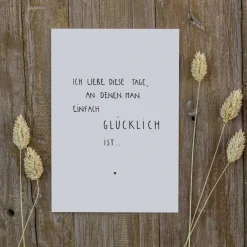 ICH LIEBE DIESE TAGE,
AN DENEN MAN
EINFACH
GLÜCKLICH
IST...